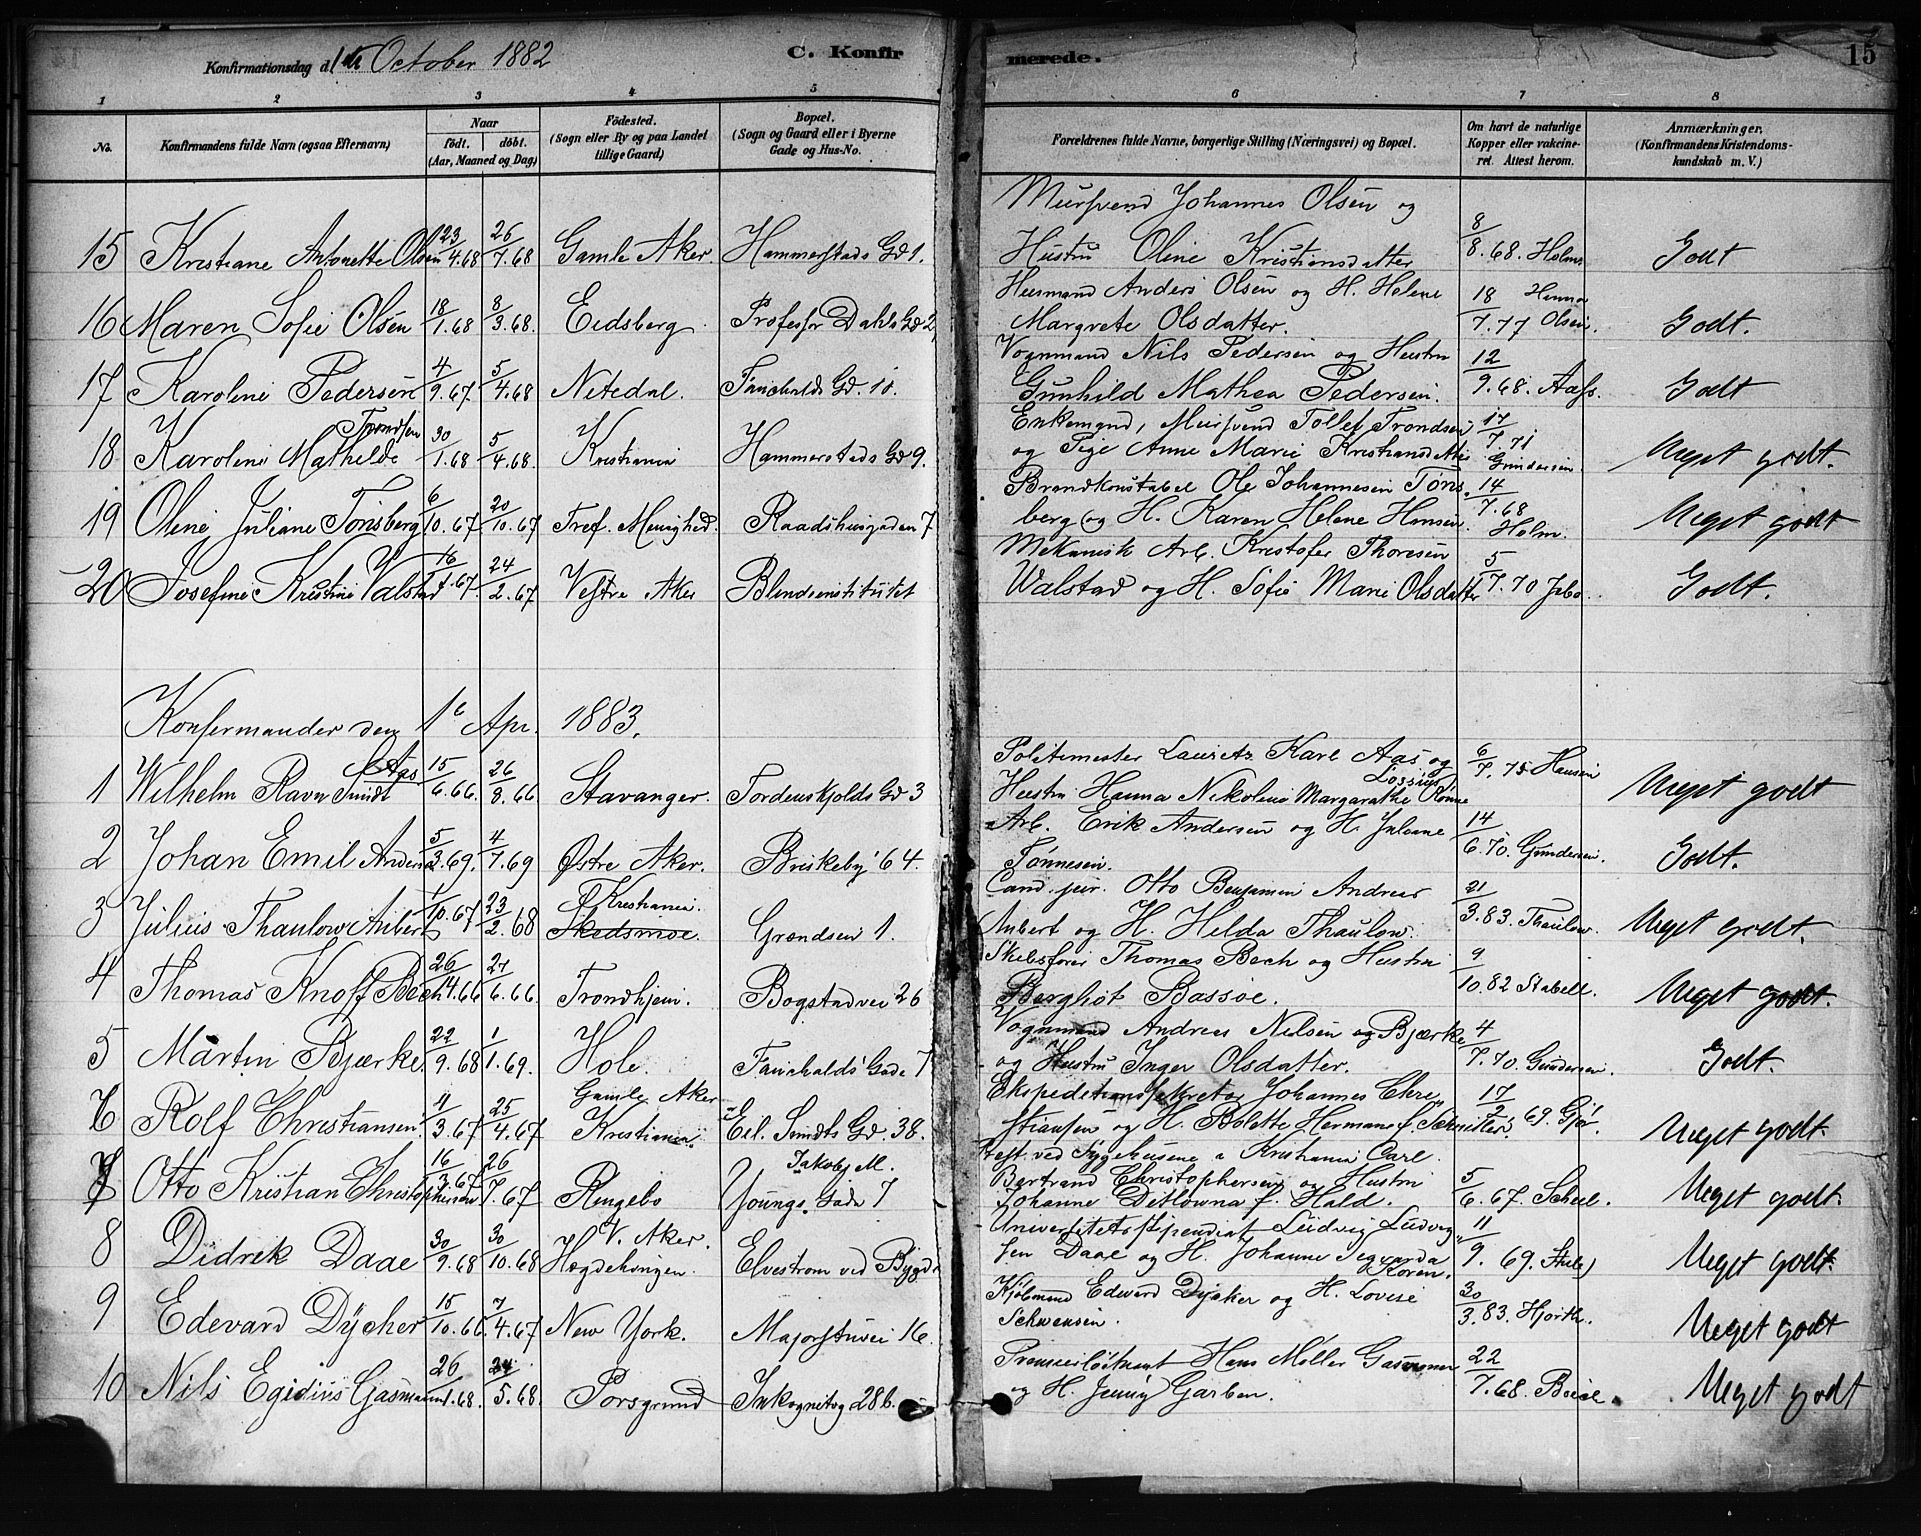 Konfirmationsdag d. 1ste October 1882
C. Konfir
merede.
15
1 2 3 4 5 6 7 8
No.
Konfirmandens fulde Navn (ogsaa Efternavn)
Naar
født. døbt.
(Aar, Maaned og Dag)
Fødested.
(Sogn eller By og paa Landet
tillige Gaard)
Bopæl.
(Sogn og Gaard eller i Byerne
Gade og Hus-No.
Forældrenes fulde Navne, borgerlige Stilling (Næringsvei) og Bopæl.
Om havt de naturlige
Kopper eller vakcine-
ret. Attest herom.
Anmærkninger.
(Konfirmandens Kristendoms-
kundskab m. V.)
Mursvend Johannes Olsen og
15 Kristiane Antonette Olsen 23/4.68 26/7.68 Gamle Aker Hammerstads Gd 1. Hustru Oline Kristiansdatter 8/8.68. Holms Godt
Husmand Anders Olsen og H. Helene
16 Maren Sofie Olsen 18/1.68 8/3.68. Eidsberg. Profesfor Dahls Gd 2, Margrete Olsdatter. 18/7.77 Hanna Olsen. Godt.
Vognmand Nils Pedersen og Hustru
17 Karoline Pedersen 4/9.67. 5/4.68 Nitedal. Fauchalds Gd. 10. Gunhild Mathea Pedersen. 12/9.68. Aass. Godt
Enkemand, Mursvend Tollef Trondsen
18 Karoline Mathilde Trondsen 30/1.68 5/4.68. Kristiania Hammerstads Gd 9. og Pige Anne Marie Kristiansdatter 17/7.71 Gundersen Meget godt.
Brandkonstabel Ole Johannesen Tøns-
19 Oline Juliane Tønsberg 6/10.67. 20/10.67 Tref. Menighed. Raadshusgaden 7 berg og H. Karen Helene Hansen. 14/7.68 Holm. Meget godt
Mekanisk Arb. Kristofer Thoresen
20 Josefine Kristine Valstad 16/1.67. 24/2.67 Vestre Aker Blindeinstitutet Walstad og H. Sofie Marie Olsdatter 5/7.70 Godt.
Konfermander den 1e Apr. 1883.
Politimester Lauritz Karl Aas og
1 Wilhelm Ravn Smidt Aas 15/6.66. 26/8.66 Stavanger. Tordenskjolds Gd 3 Hustru Hanna Nikoline Margarathe Lossius Rønne 6/7.75 Hansen Meget godt
Arb. Erik Andersen og H. Juliane
2 Johan Emil Anders 5/3.69. 4/7.69 Østre Aker. Briskeby 64. Tønnesen. 14/6.70. Gundersen. Godt.
Cand. jur. Otto Benjamin Andreas
3 Julius Thaulow Aubert 1/10.67 23/2.68 Kristiania. Skedsmoe. Grændsen 1. Aubert og H. Helda Thaulow. 21/3.83. Thaulow. Meget godt.
Skibsfører Thomas Bech og Hustru
4 Thomas Knoff Bech 26/4.66 27/6.66. Trondhjem. Bogstadvei 26 Bergliot Bassøe. 9/10.82 Stabell. Meget godt.
Vognmand Andreas Nilsen og Bjærke
5 Martin Bjærke. 22/9.68 1/1.69. Hole. Fauchalds' Gade 7 og Hustru Inger Olsdatter. 4/7.70. Gundersen. Godt.
Gamle Aker Ekspeditionssekretær Johannes Chri-
6 Rolf Christiansen. 4/3.67 25/4.67 Kristiania Eil. Sundts Gd. 38. stiansen og H. Bolette Hermane f. 17/2.69. Gjør. Meget godt.
Præst ved Sygehusene i Kristiania Carl
7 Otto Kristian Christophersen 16/3.67 26/7.67 Ringebo Jakob M. Youngs. Gade 7 Bertrand Christophersen og Hustru
Johanne Ditlowna f. Hald. 5/6.67. Scheel. Meget godt.
Universitetsstipendiat Ludvig Ludvig-
8 Didrik Daae 30/9.68 30/10.68 V. Aker. Hægdehougen. Elvestrøm ved Bygdø sen Daae og H. Johanne Segvarda Koren. 11/9.69. Meget godt.
9 Edevard Dÿcher 15/10.66. 7/4.67 New York. Majorstuvei 16. Kjøbmand Edward Dycker og H. Lovise
Schwensen. 30/3.83. Hjorth. Meget godt
Premierløitnant Hans Møller Gasmann
10 Nils Egidius Gasmann 26/1.68. 24/5.68 Porsgrund Inkognitog 28b. og H. Jenny Garben. 22/7.68. Meget godt